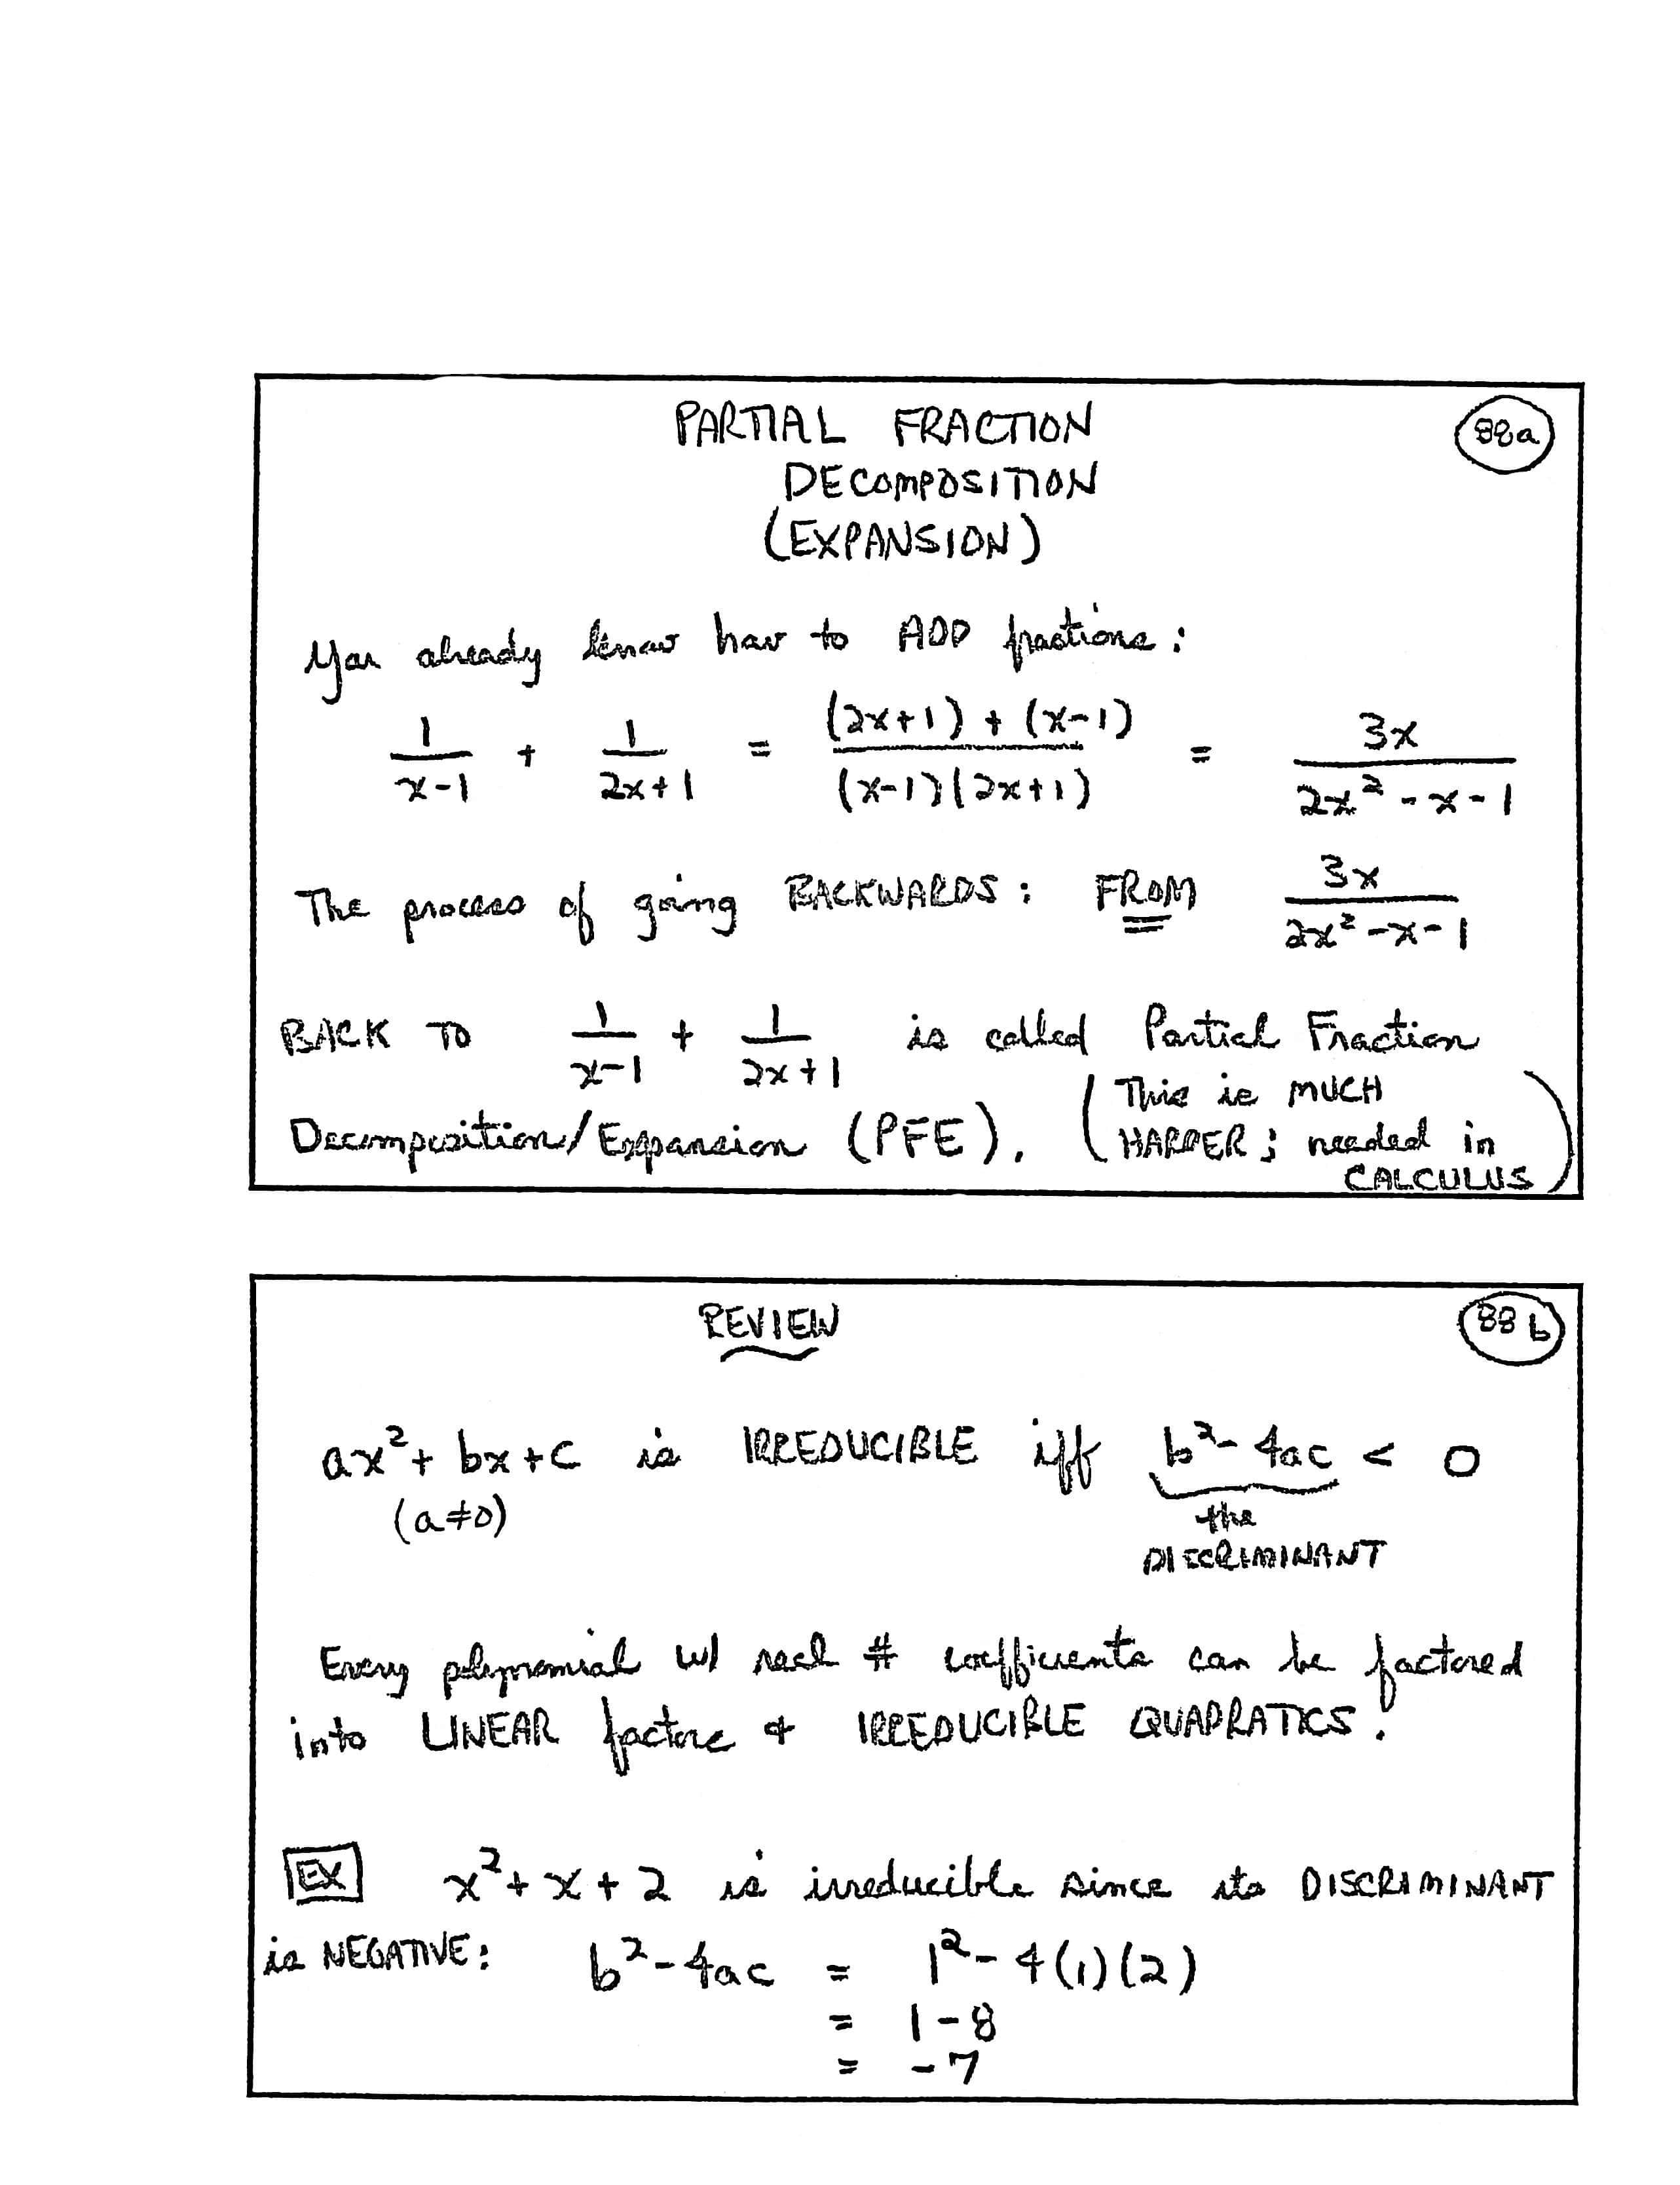 PARTIAL FRACTION
88a
DECOMPOSITION
(EXPANSION)
You already know how to ADD fractions:
1/(x-1) + 1/(2x+1) = ((2x+1) + (x-1))/((x-1)(2x+1)) = 3x/(2x² - x - 1)
The process of going BACKWARDS: FROM 3x/(2x² - x - 1)
BACK TO 1/(x-1) + 1/(2x+1) is called Partial Fraction
Decomposition/Expansion (PFE). (This is MUCH
HARDER; needed in
CALCULUS)
REVIEW
88b
ax² + bx + c is IRREDUCIBLE iff b² - 4ac < 0
(a≠0)
the
DISCRIMINANT
Every polynomial w/ real # coefficients can be factored
into LINEAR factors & IRREDUCIBLE QUADRATICS.
EX x² + x + 2 is irreducible since its DISCRIMINANT
is NEGATIVE: b² - 4ac = 1² - 4(1)(2)
= 1 - 8
= -7